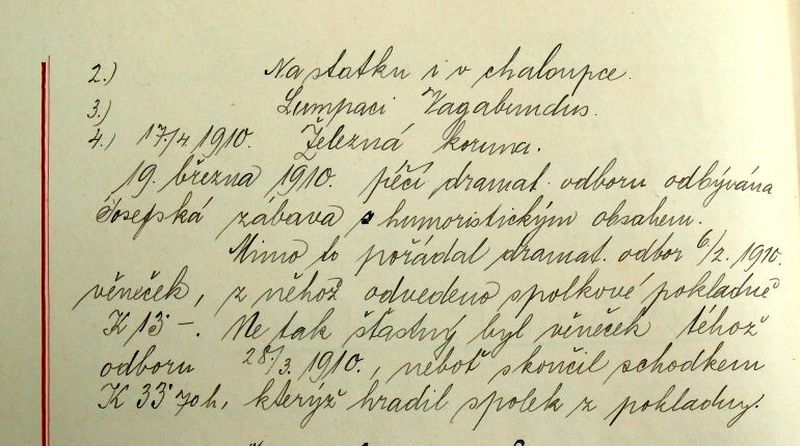 2.) Na statku i v chaloupce.
3.) Lumpaci Vagabundus.
4.) 17/4 1910. Železná koruna.
19. března 1910. péčí dramat. odboru odbývána
Josefská zábava s humoristickým obsahem.
Mimo to pořádal dramat. odbor 6/2. 1910.
věneček, z něhož odvedeno spolkové pokladně
K 13 –. Ne tak šťastný byl věneček téhož
odboru 28./3. 1910., neboť skončil schodkem
K 33 70 h, kterýž hradil spolek z pokladny.